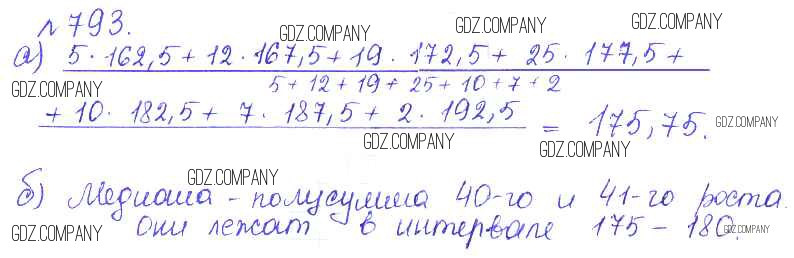 №793. GDZ.COMPANY GDZ.COMPANY GDZ.COMPANY
а) 5 · 162,5 + 12 · 167,5 + 19 · 172,5 + 25 · 177,5 +
GDZ.COMPANY 5 + 12 + 19 + 25 + 10 + 7 + 2
+ 10 · 182,5 + 7 · 187,5 + 2 · 192,5 = 175,75. GDZ.COMPANY
GDZ.COMPANY GDZ.COMPANY
GDZ.COMPANY
б) Медиана - полусумма 40-го и 41-го роста.
GDZ.COMPANY Они лежат в интервале 175 - 180. GDZ.COMPANY